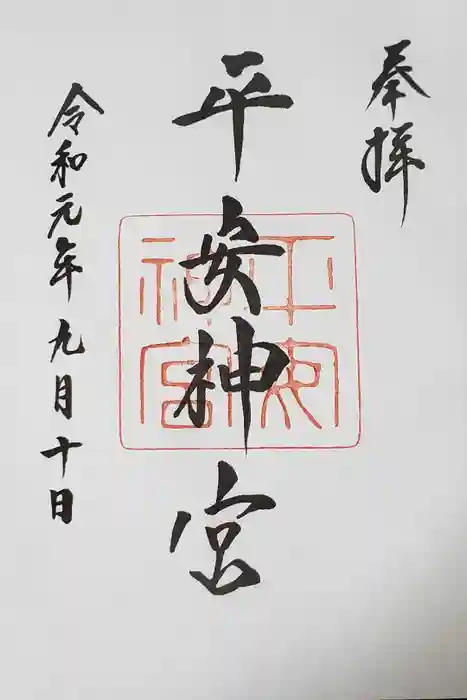 奉拝
平安神宮
平安神宮
令和元年九月十日